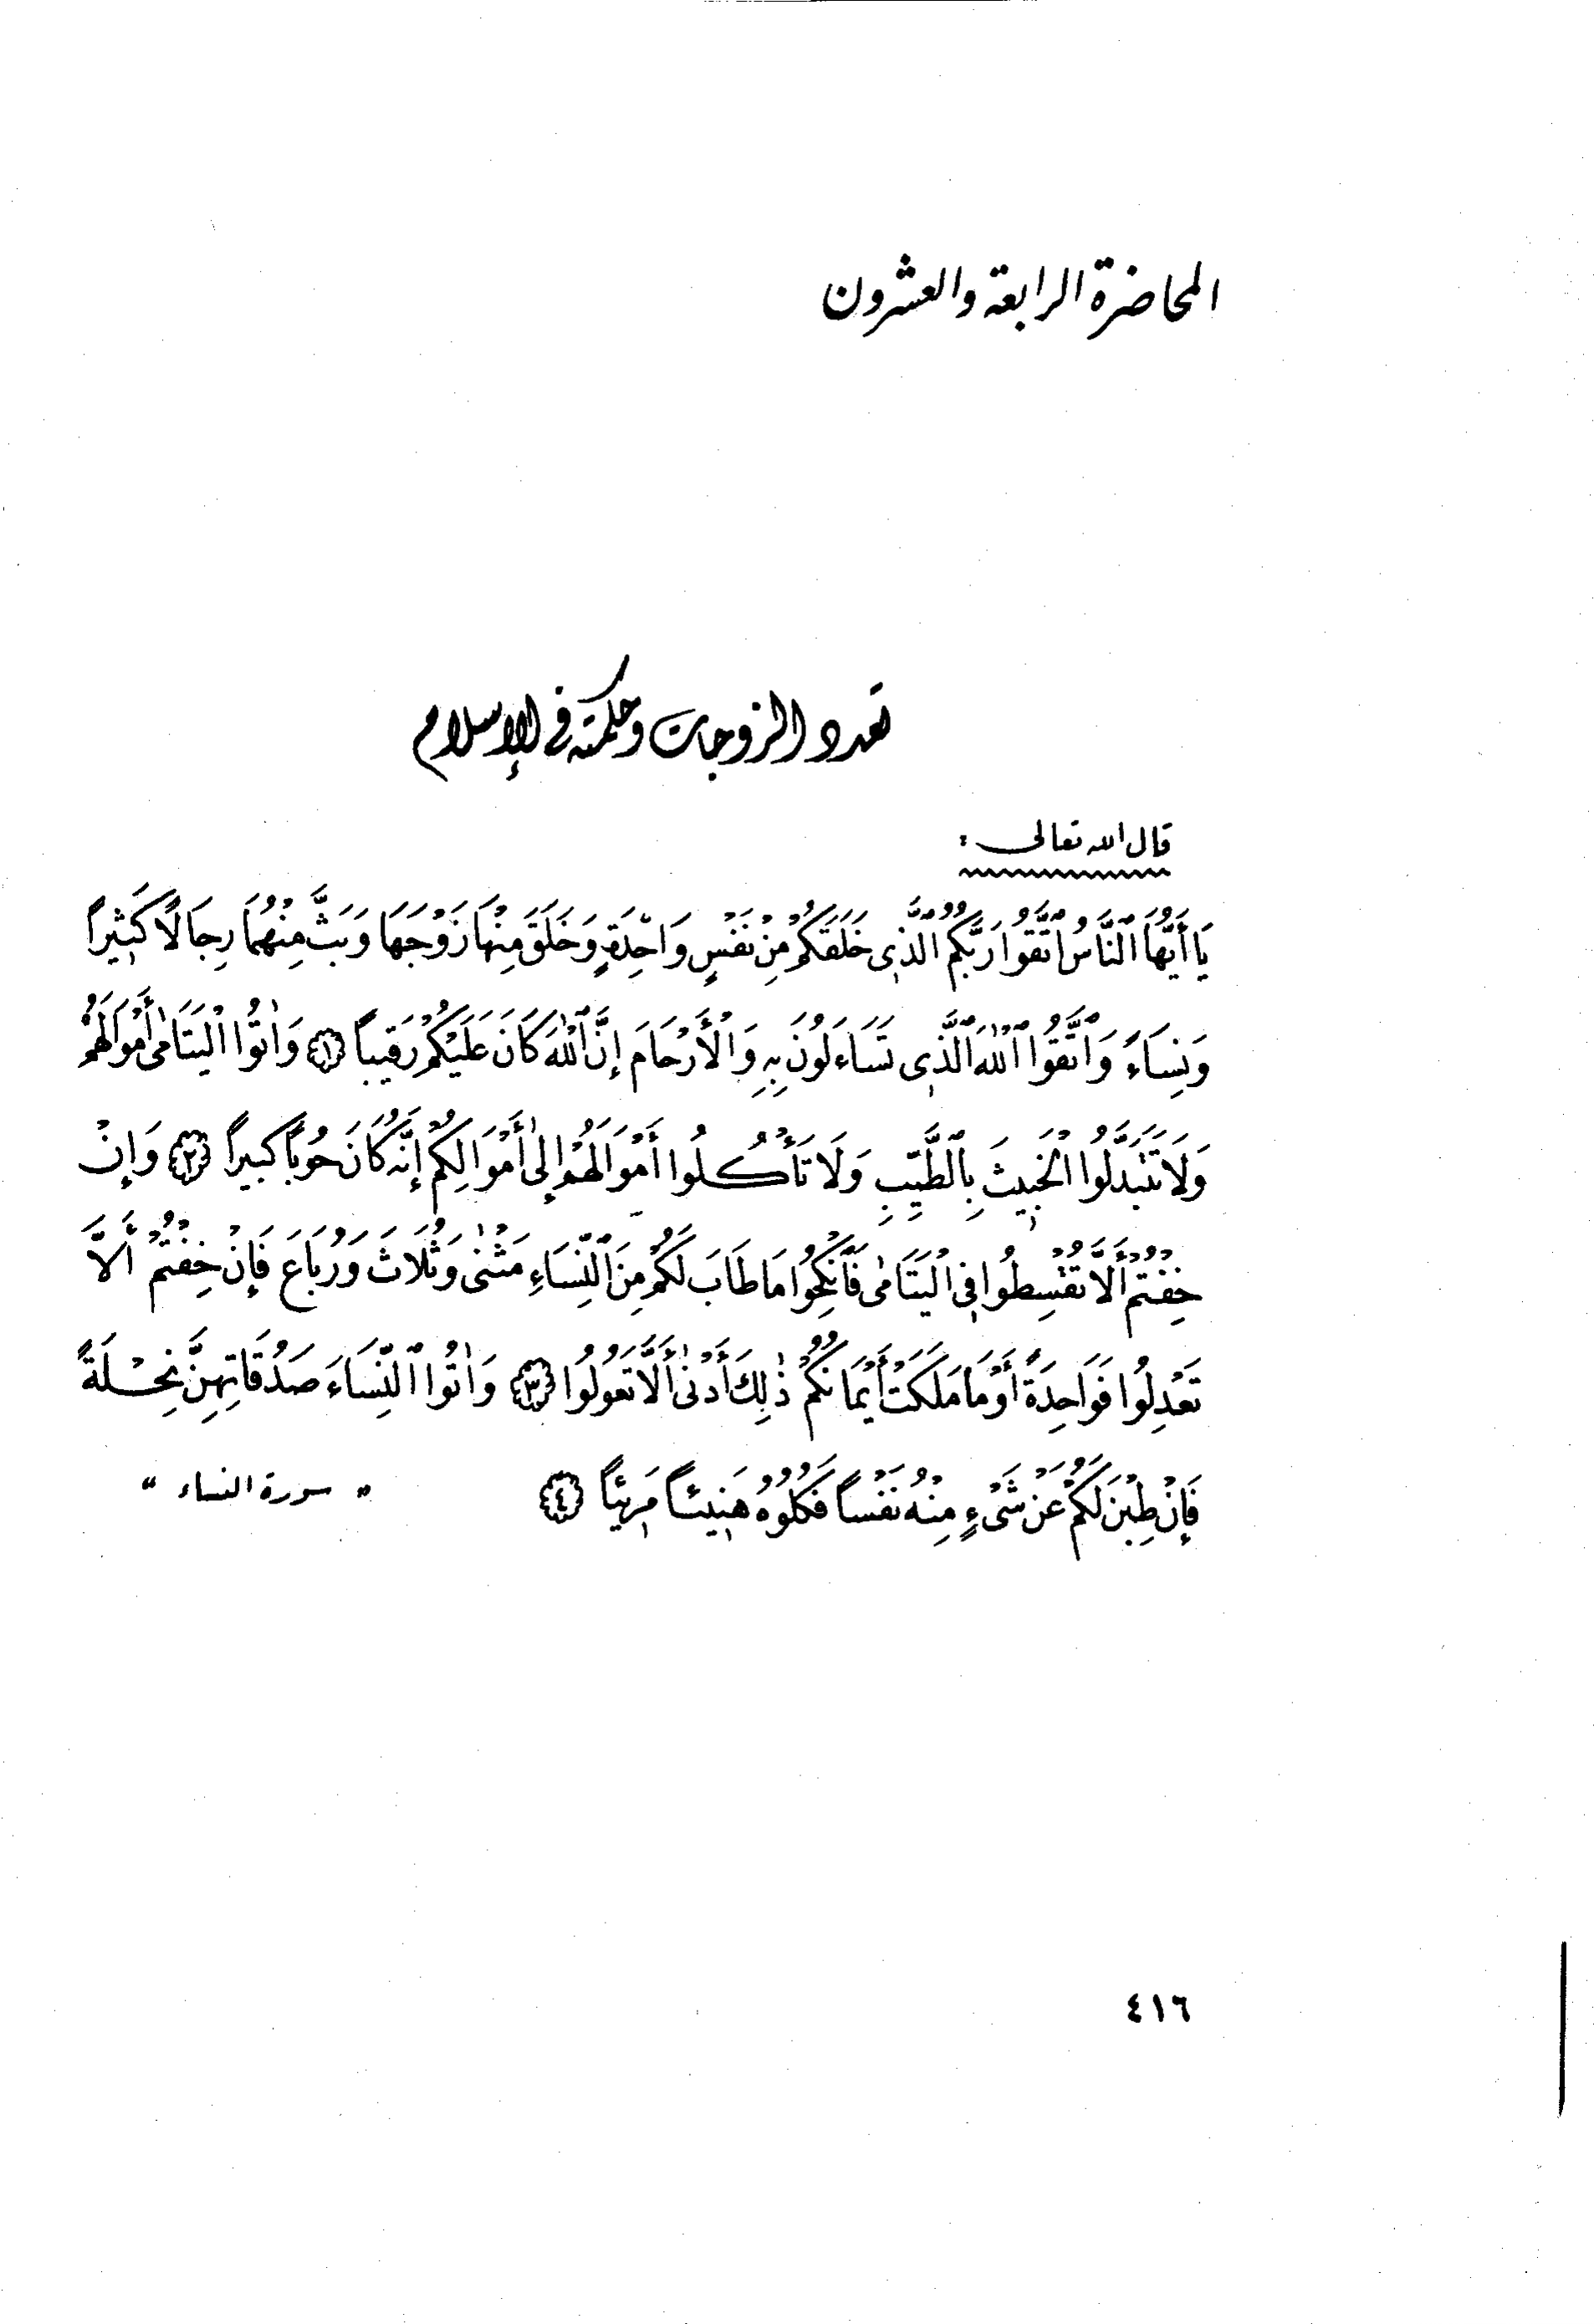 المحاضرة الرابعة والعشرون
تعدد الزوجات وحكمته في الإسلام
قال الله تعالى :
يَا أَيُّهَا ٱلنَّاسُ ٱتَّقُوا رَبَّكُمُ ٱلَّذِى خَلَقَكُمْ مِنْ نَفْسٍ وَاحِدَةٍ وَخَلَقَ مِنْهَا زَوْجَهَا وَبَثَّ مِنْهُمَا رِجَالًا كَثِيراً
وَنِسَاءً وَٱتَّقُوا ٱللّٰهَ ٱلَّذِى تَسَاءَلُونَ بِهِ وَالْأَرْحَامَ إِنَّ ٱللّٰهَ كَانَ عَلَيْكُمْ رَقِيباً ﴿١﴾ وَاٰتُوا الْيَتَامٰى أَمْوَالَهُمْ
وَلَا تَتَبَدَّلُوا الْخَبِيثَ بِٱلطَّيِّبِ وَلَا تَأْكُلُوا أَمْوَالَهُمْ إِلٰى أَمْوَالِكُمْ إِنَّهُ كَانَ حُوباً كَبِيراً ﴿٢﴾ وَإِنْ
خِفْتُمْ أَلَّا تُقْسِطُوا فِى الْيَتَامٰى فَٱنْكِحُوا مَا طَابَ لَكُمْ مِنَ ٱلنِّسَاءِ مَثْنٰى وَثُلَاثَ وَرُبَاعَ فَإِنْ خِفْتُمْ أَلَّا
تَعْدِلُوا فَوَاحِدَةً أَوْ مَا مَلَكَتْ أَيْمَانُكُمْ ذٰلِكَ أَدْنٰى أَلَّا تَعُولُوا ﴿٣﴾ وَاٰتُوا ٱلنِّسَاءَ صَدُقَاتِهِنَّ نِحْلَةً
فَإِنْ طِبْنَ لَكُمْ عَنْ شَىْءٍ مِنْهُ نَفْساً فَكُلُوهُ هَنِيئاً مَرِيئاً ﴿٤﴾ " سورة النساء "
٤١٦